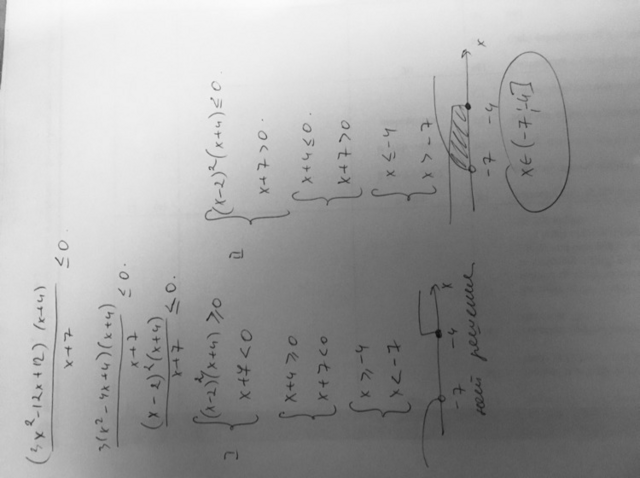 (3x²-12x+12)(x+4)
x+7
≤0.
3(x²-4x+4)(x+4)
x+7
≤0.
(x-2)²(x+4)
x+7
≤0.
I
{(x-2)²(x+4)≥0
x+7<0
{x+4≥0
x+7<0
{x≥-4
x<-7
-7 -4 x
решений
II
{(x-2)²(x+4)≤0.
x+7>0.
{x+4≤0.
x+7>0
{x≤-4
x>-7
-7 -4 x
x∈(-7;-4]